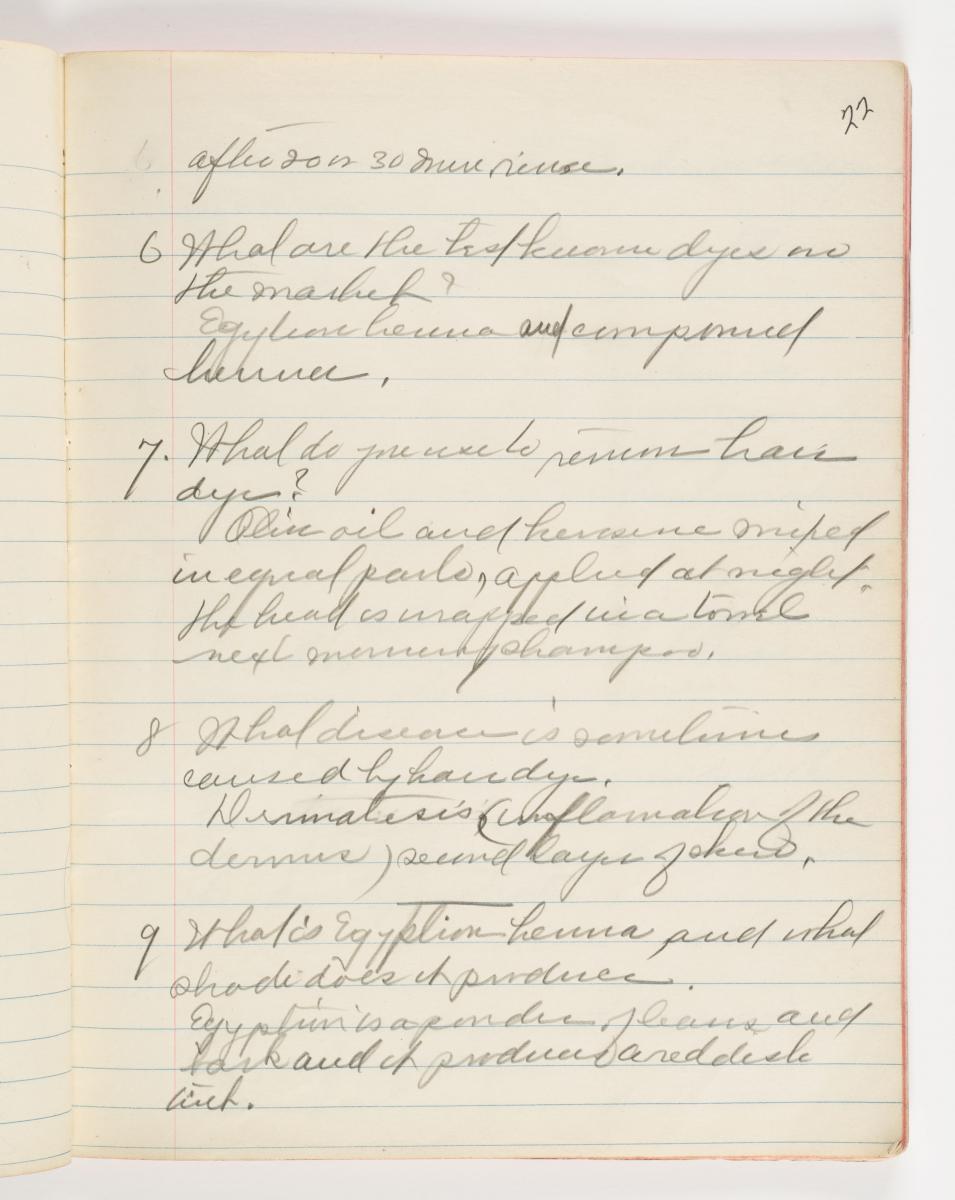 22
after 20 or 30 min, rinse.
6 What are the best known dyes on
the market?
Egytion henna and compound
henna.
7. What do you use to remove hair
dye?
Olive oil and kerosine mixed
in equal parts, applied at night.
The head is wrapped in a towel
next morning shampoo.
8 What disease is sometimes
caused by hair dye.
Dermatesis (inflamation of the
dermus) second layer of skin.
9 What is Egyption henna and what
shade does it produce.
Egyption is a powder of leaves and
bark and it produces a reddish
tint.